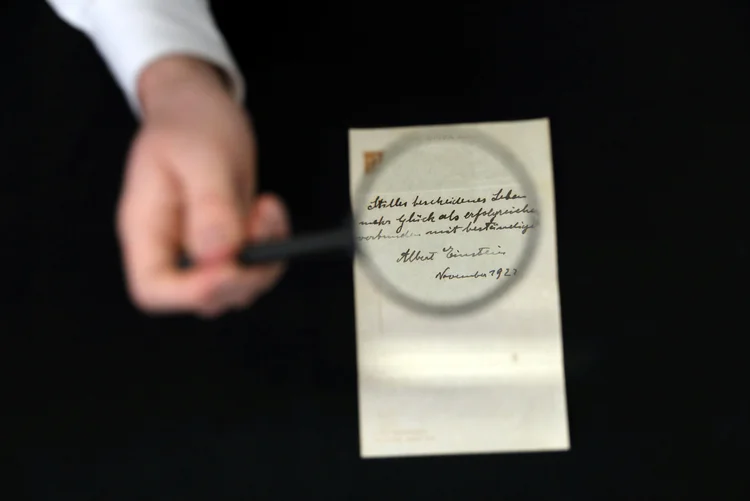 Stilles bescheidenes Leben
mehr Glück als erfolgreiche
verbunden mit beständige
Albert Einstein
November 1922